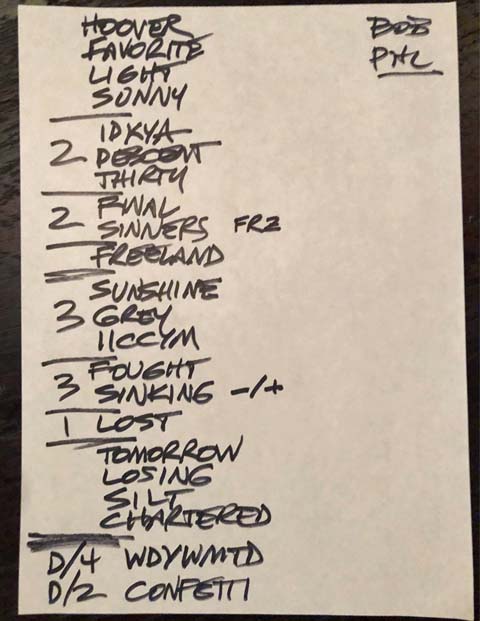 HOOVER
FAVORITE
LIGHT
SUNNY
BOB
PHL
IDKYA
2 DESCENT
THIRTY
2 RWAL
SINNERS FRZ
FREELAND
SUNSHINE
3 GREY
IICCYM
FOUGHT
3 SINKING -/+
1 LOST
TOMORROW
LOSING
SILT
CHARTERED
D/4 WDYWMTD
D/2 CONFETTI